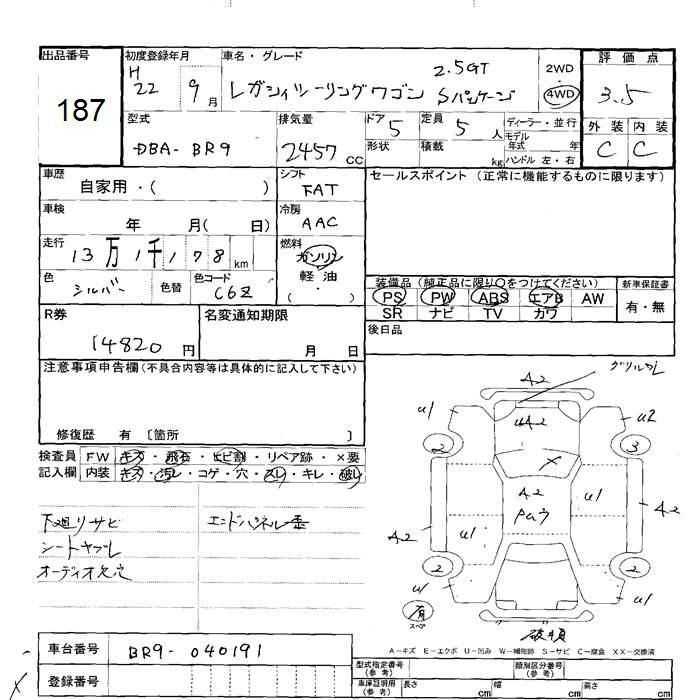 出品番号
187
初度登録年月
H
22 9月
車名・グレード
2.5GT
レガシィツーリングワゴン Sパッケージ
2WD
4WD
評価点
3.5
外装 内装
C C
型式
DBA- BR9
排気量
2457 CC
ドア 5
形状
定員 5 人
積載 kg
ディーラー・並行
モデル
年式 年
ハンドル 左・右
車歴
自家用・( )
シフト
FAT
車検
年 月( 日)
冷房
AAC
走行
13万1千178km
燃料
ガソリン
軽油
・
( )
色
シルバー
色替
色コード
C6Z
セールスポイント (正常に機能するものに限ります)
装備品 (純正品に限り○をつけてください)
PS PW ABS エアB AW
SR ナビ TV カワ
新車保証書
有・無
後日品
R券
14820 円
名変通知期限
月 日
注意事項申告欄 (不具合内容等は具体的に記入して下さい)
修復歴 有 〔箇所 〕
検査員
記入欄
FW キズ・飛石・ヒビ割・リペア跡・×要
内装 キズ・汚レ・コゲ・穴・スレ・キレ・破レ
下廻リサビ
シートヤブレ
オーディオ欠品
エンドパネル歪
A2
グリルワレ
u1
u2
uA2
2
3
×
A2
Paウ
u1
u1
A2
A2
2
2
u1
u1
有
スペア
破損
A-キズ E-エクボ U-凹み W-補修跡 S-サビ C-腐食 XX-交換済
車台番号
BR9- 040191
登録番号
×
型式指定番号
(参考)
類別区分番号
(参考)
車庫証明用
(参考)
長さ cm
幅 cm
高さ cm